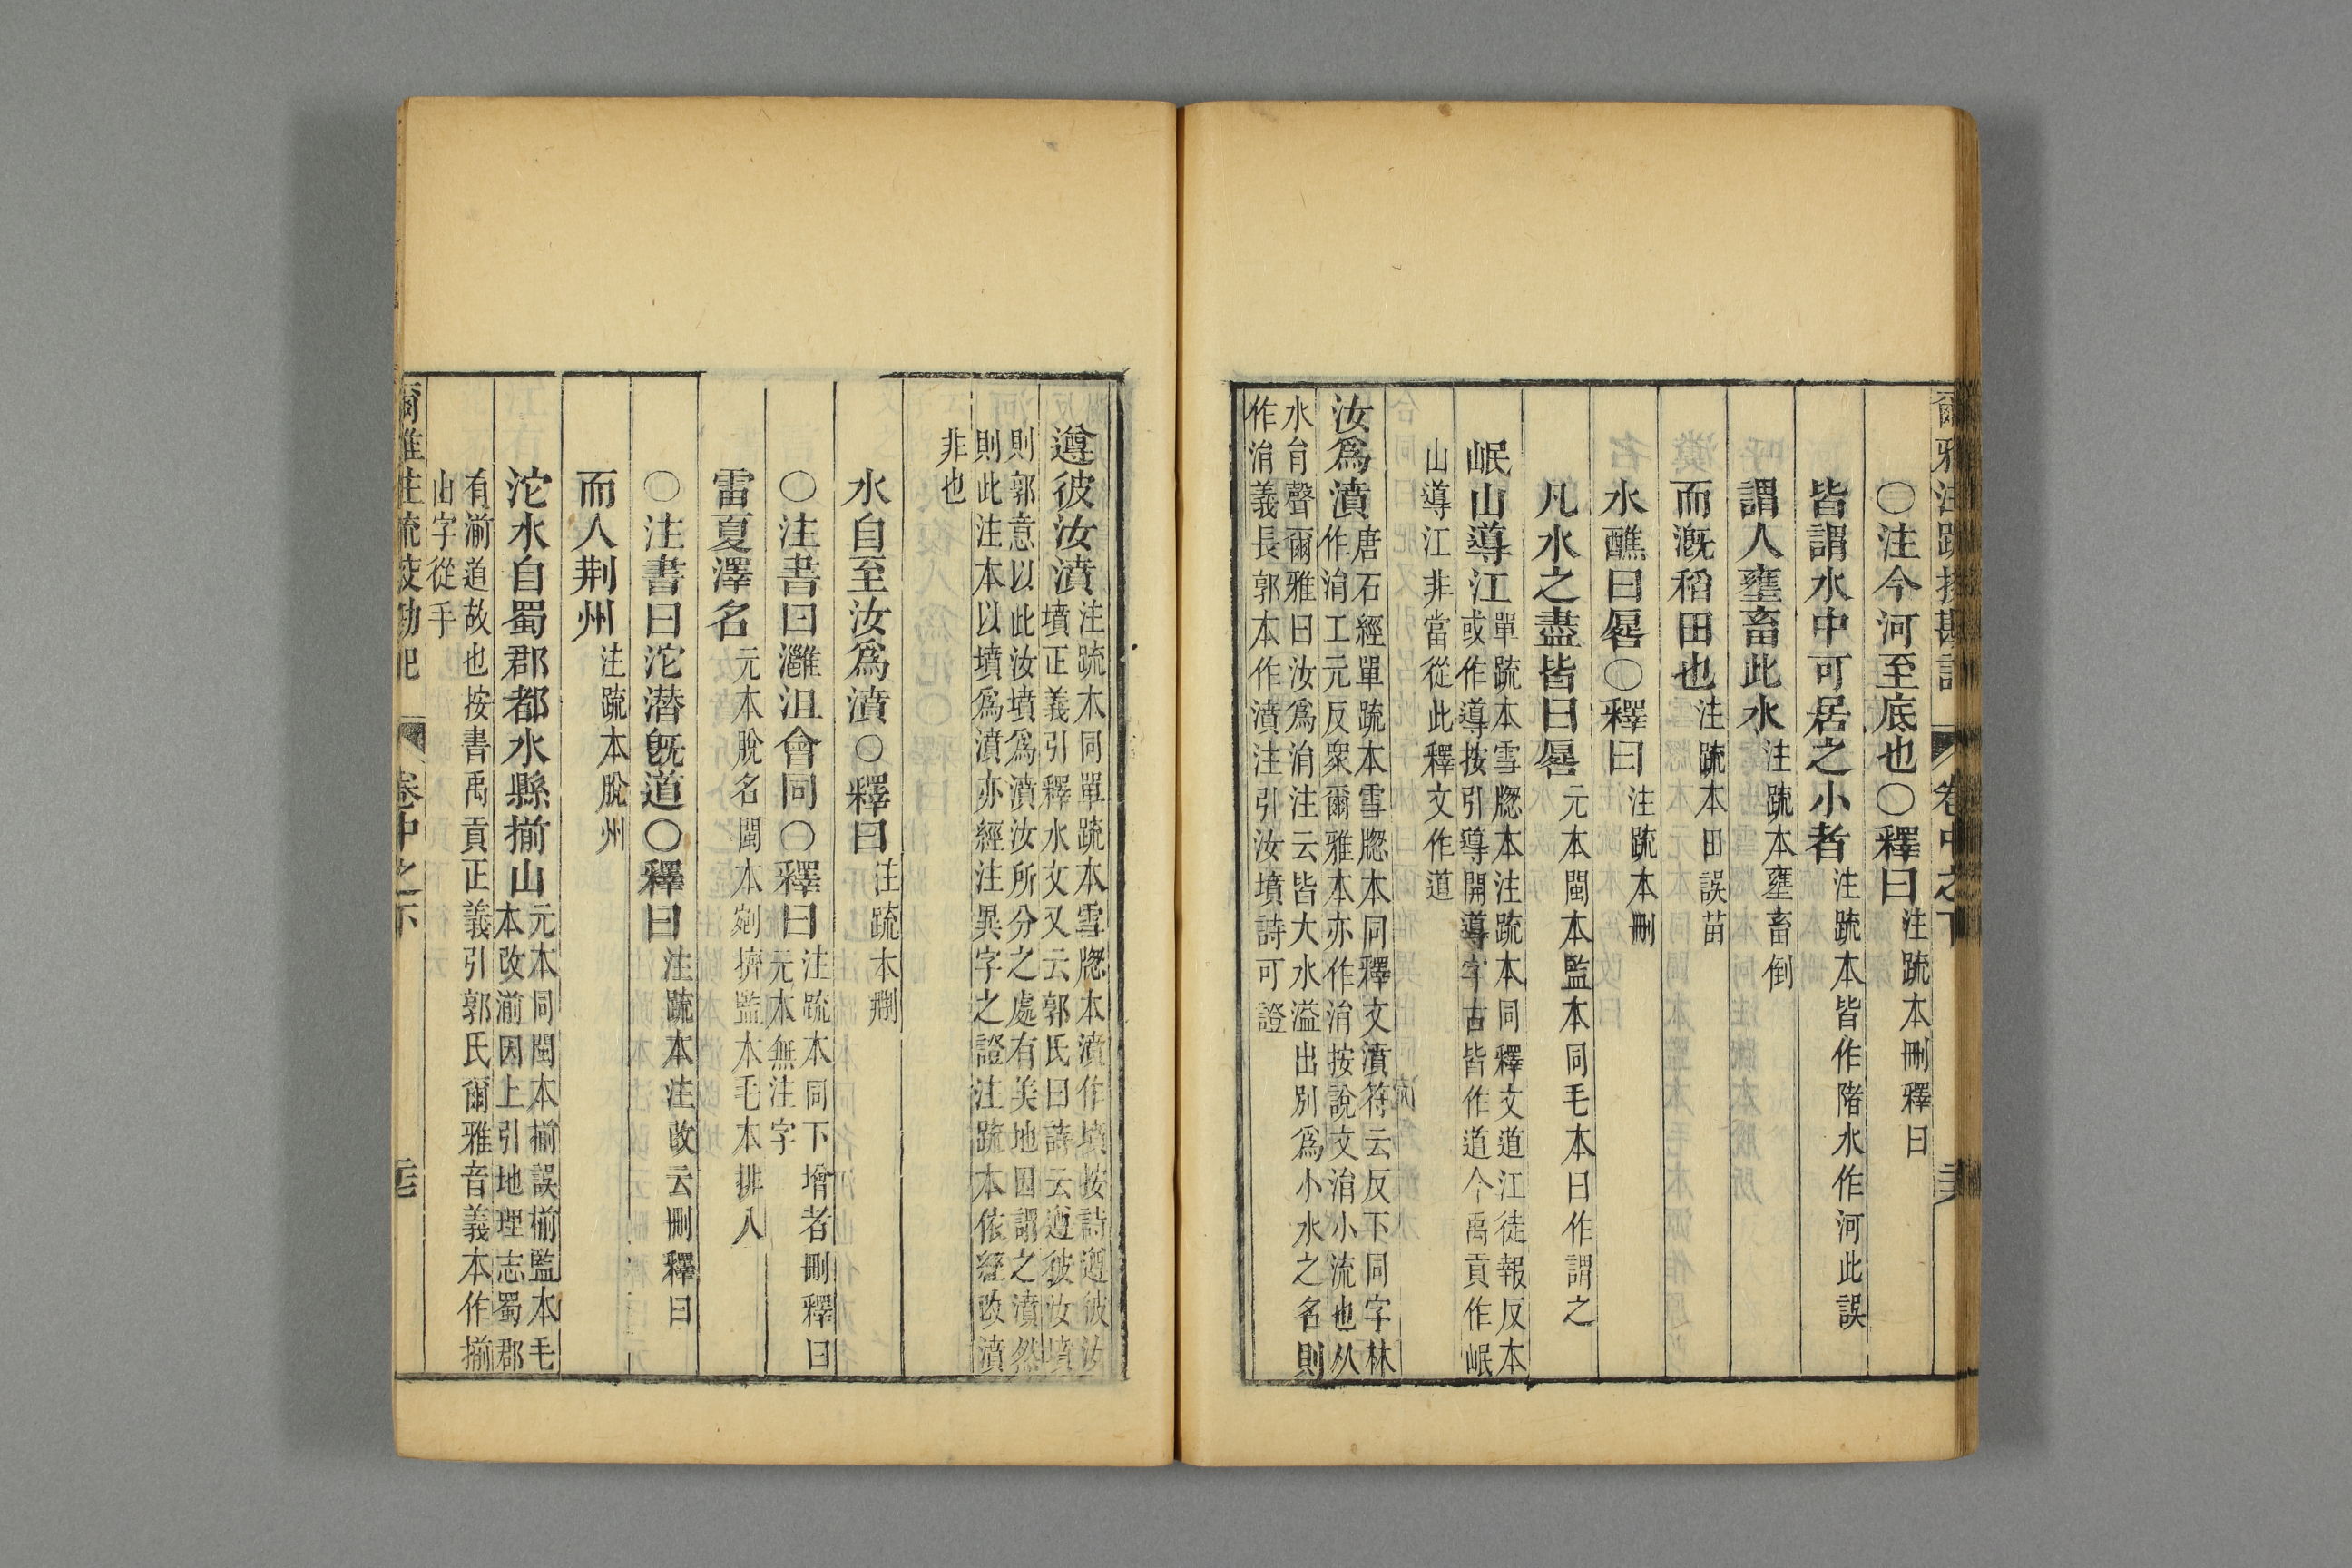 爾雅注疏挍勘記 卷中之下
〇注今河至底也〇釋曰注疏本刪釋曰
皆謂水中可居之小者注疏本皆作階水作河此誤
謂人壅畜此水注疏本壅畜倒
而漑稻田也注疏本田誤苗
水醮曰厬〇釋曰注疏本刪
凡水之盡皆曰厬元本閩本監本同毛本曰作謂之
岷山導江單疏本雪牕本注疏本同釋文道江徒報反本
或作導按引導開導字古皆作道今禹貢作岷
山導江非當從此釋文作道
汝爲濆唐石經單疏本雪牕本同釋文濆符云反下同字林
作涓工元反衆爾雅本亦作涓按說文涓小流也从
水肙聲爾雅曰汝爲涓注云皆大水溢出別爲小水之名則
作涓義長郭本作濆注引汝墳詩可證
遵彼汝濆注疏本同單疏本雪牕本濆作墳按詩遵彼汝
墳正義引釋水文又云郭氏曰詩云遵彼汝墳
則郭意以此汝墳爲濆汝所分之處有美地因謂之濆然
則此注本以墳爲濆亦經注異字之證注疏本依經改濆
非也
水自至汝爲濆〇釋曰注疏本刪
〇注書曰灉沮會同〇釋曰注疏本同下增者刪釋曰
元本無注字
雷夏澤名元本脫名閩本剜擠監本毛本排入
〇注書曰沱潜旣道〇釋曰注疏本注改云刪釋曰
而入荆州注疏本脫州
沱水自蜀郡都水縣揃山元本同閩本揃誤椾監本毛
本改湔因上引地理志蜀郡
有湔道故也按書禹貢正義引郭氏爾雅音義本作揃
山字從手
爾雅注疏挍勘記 卷中之下